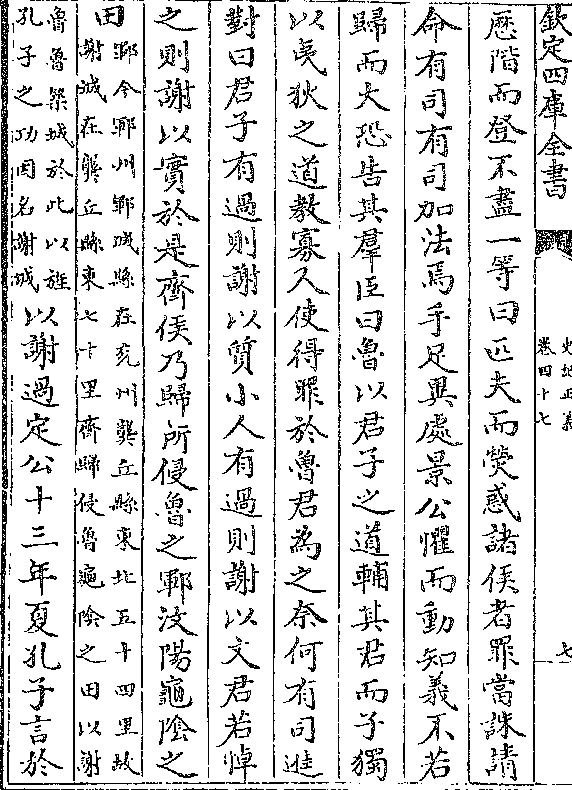 欽定四庫全書
史記正義
卷四十七
七
歷階而登不盡一等曰匹夫而熒惑諸侯者罪當誅請
命有司有司加法焉手足異處景公懼而動知義不若
歸而大恐告其羣臣曰魯以君子之道輔其君而子獨
以夷狄之道教寡人使得罪於魯君為之奈何有司進
對曰君子有過則謝以質小人有過則謝以文君若悼
之則謝以實於是齊侯乃歸所侵魯之鄆汶陽龜陰之
田鄆今鄆州鄆城縣在兖州龔丘縣東北五十四里故
謝城在龔丘縣東七十里齊歸侵魯龜陰之田以謝
魯魯築城於此以旌
孔子之功因名謝城以謝過定公十三年夏孔子言於